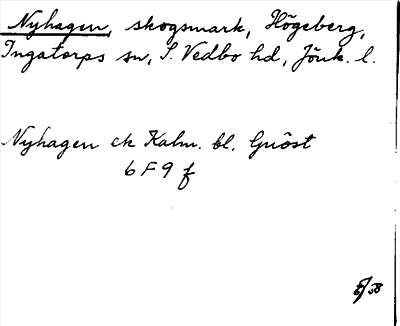 Nyhagen, skogsmark, Högeberg,
Ingatorps sn, S. Vedbo hd, Jönk. l.
Nyhagen ek Kalm. bl. Gnöst
6 F 9 f